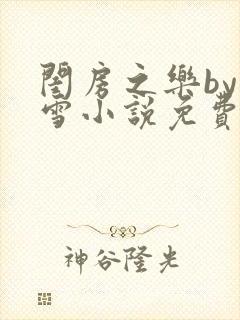 閨房之樂by
雪小說免費
神谷隆光